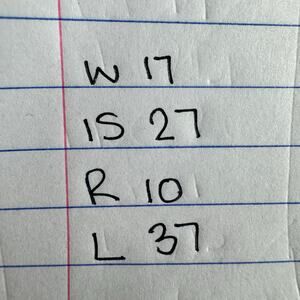 W 17
IS 27
R 10
L 37